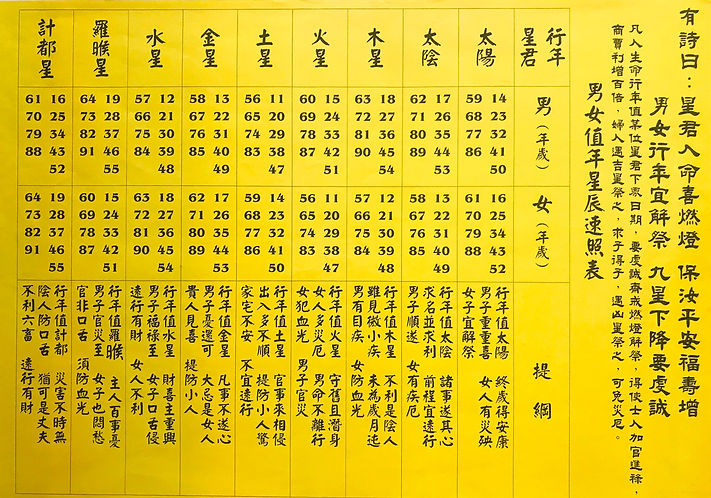 有詩曰：星君入命喜燃燈 保汝平安福壽增
男女行年宜解祭 九星下降要虔誠
凡人生命行年值某位星君下界日期，要虔誠齋戒燃燈解祭，得使士人加官進祿，
商賈利增百倍，婦人遇吉星祭之，求子得子，遇凶星祭之，可免災厄。
男女值年星辰速照表
行年
星君
男（年歲）
女（年歲）
提綱
太陽
59 14
68 23
77 32
86 41
50
61 16
70 25
79 34
88 43
52
行年值太陽 終歲得安康
男子重重喜 女人有災殃
女子宜解祭
太陰
62 17
71 26
80 35
89 44
53
58 13
67 22
76 31
85 40
49
行年值太陰 諸事遂其心
求名並求利 前程宜遠行
男子順遂 女有疾厄
木星
63 18
72 27
81 36
90 45
54
57 12
66 21
75 30
84 39
48
行年值木星 不利是陰人
雖見微小疾 未為歲月迍
男有目疾 女防血光
火星
60 15
69 24
78 33
87 42
51
56 11
65 20
74 29
83 38
47
行年值火星 守舊且潛身
女人多災厄 男命不離行
女犯血光 男子官災
土星
56 11
65 20
74 29
83 38
47
59 14
68 23
77 32
86 41
50
行年值土星 官事來相侵
出入多不順 提防小人驚
家宅不安 不宜遠行
金星
58 13
67 22
76 31
85 40
49
62 17
71 26
80 35
89 44
53
行年值金星 凡事不遂心
男子憂還可 大忌是女人
貴人見喜 提防小人
水星
57 12
66 21
75 30
84 39
48
63 18
72 27
81 36
90 45
54
行年值水星 財喜主重興
男子福祿至 女子口舌侵
遠行有財 女人不利
羅睺星
64 19
73 28
82 37
91 46
55
60 15
69 24
78 33
87 42
51
行年值羅睺 主人百事憂
男子官災至 女子也悶愁
官非口舌 須防血光
計都星
61 16
70 25
79 34
88 43
52
64 19
73 28
82 37
91 46
55
行年值計都 災害不時無
陰人防口舌 猶可是丈夫
不利六畜 遠行有財